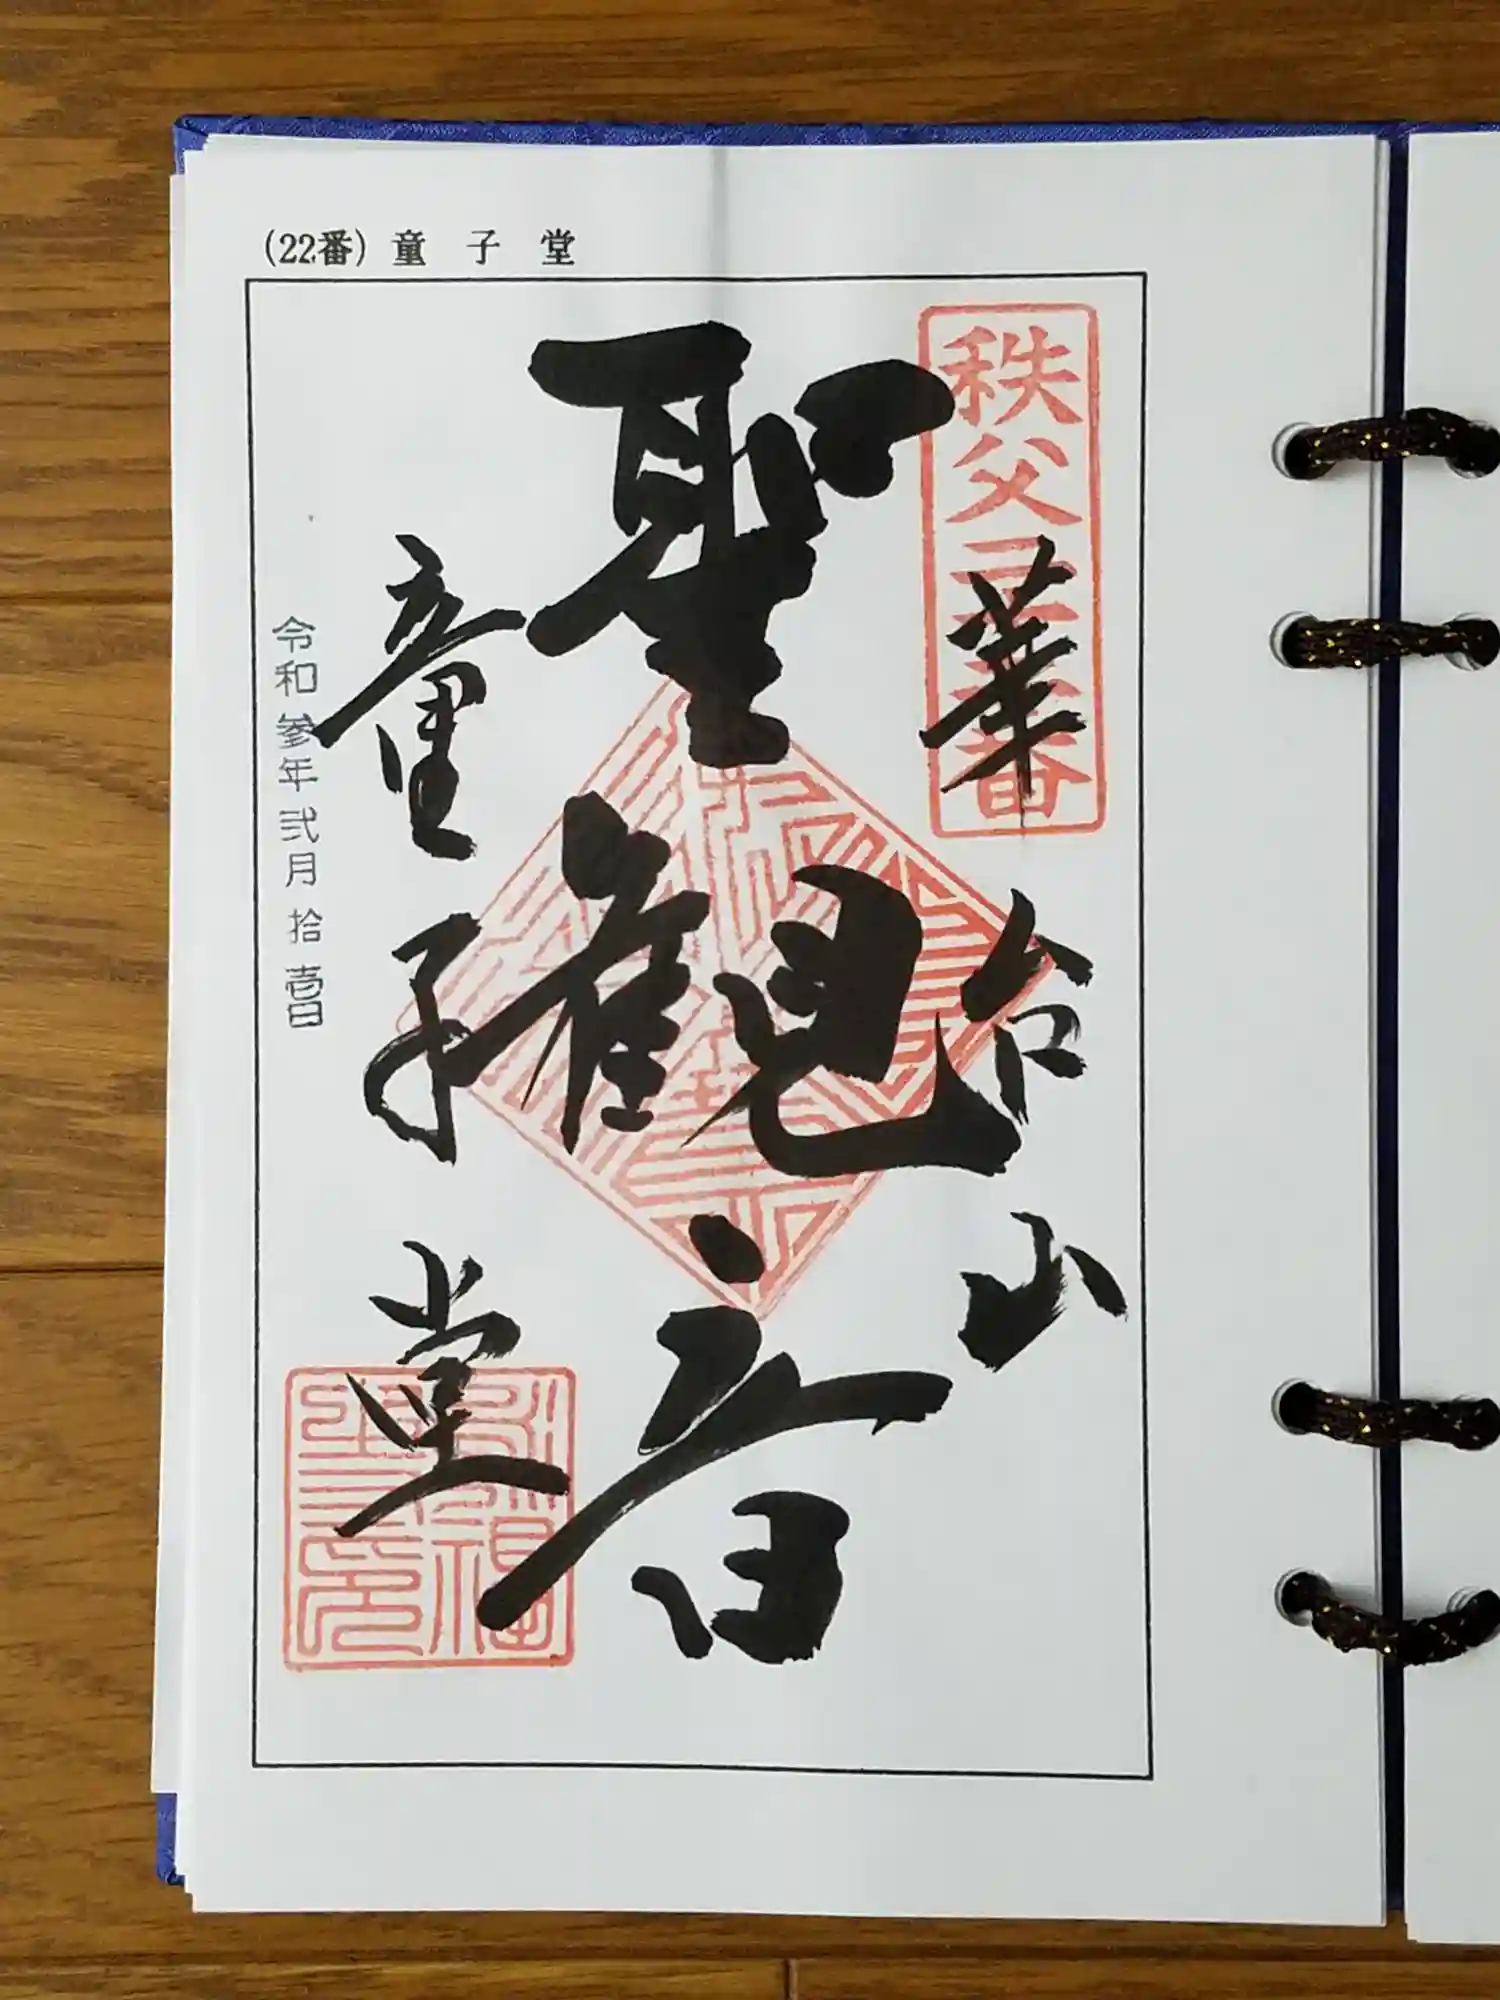 (22番) 童 子 堂
秩父二十二番
華台山
聖観音
童子堂
令和参年弐月拾壱日